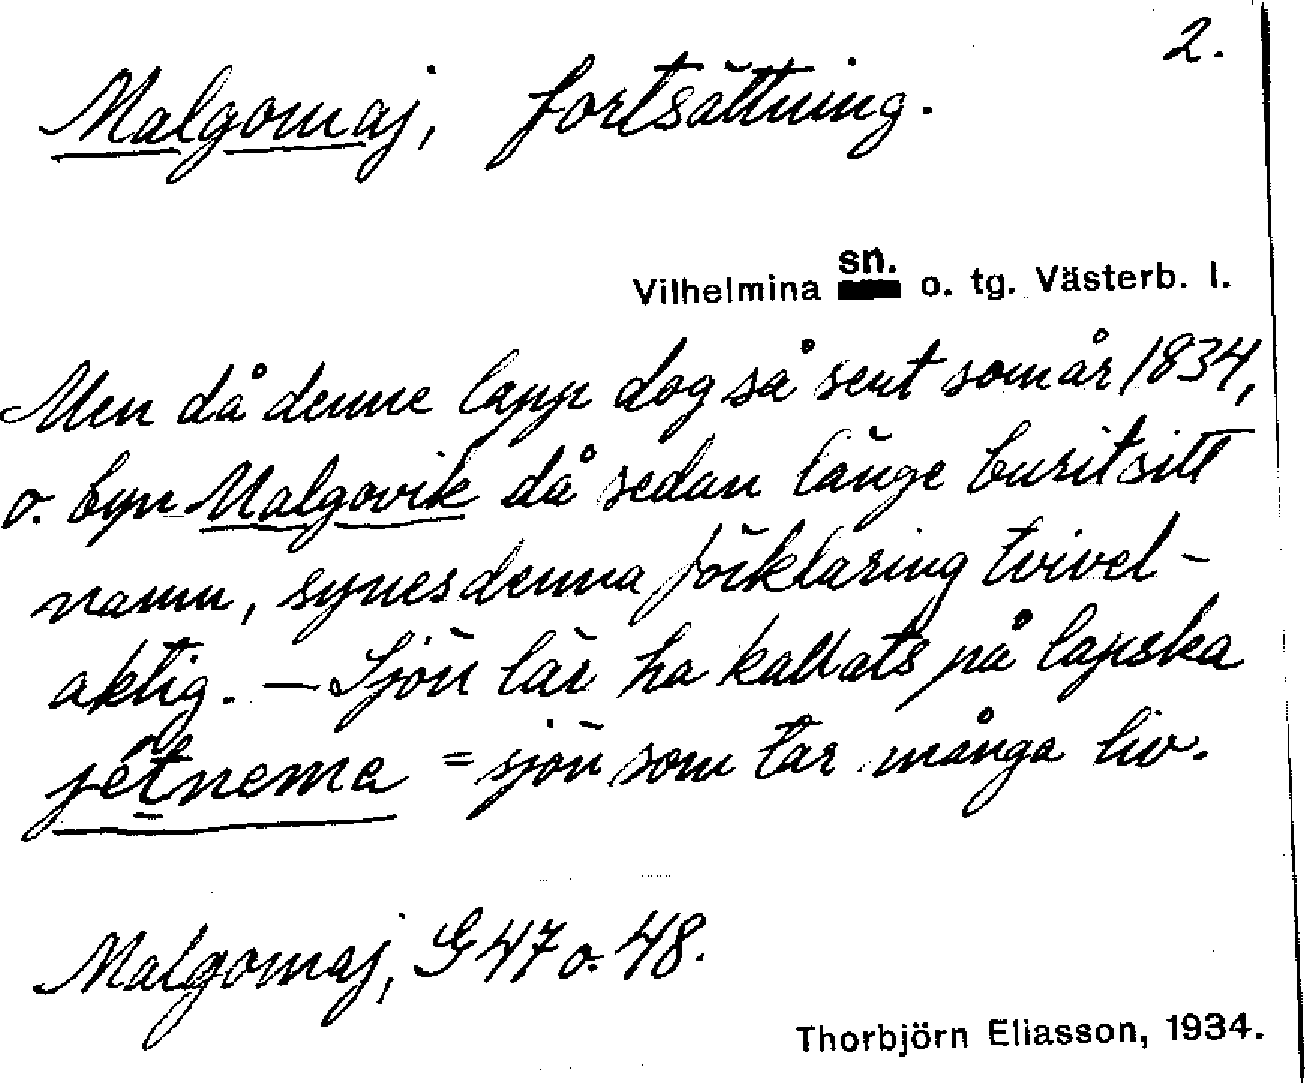 2.
Malgomaj, fortsättning.
Vilhelmina sn. o. tg. Västerb. l.
Men då denne lapp dog så sent som år 1834,
o. byn Malgovik då sedan länge burit sitt
namn, synes denna förklaring tvivel-
aktig. — Sjön lär ha kallats på lapska
jetnema = sjön som tar många liv.
Malgomaj, G 47 o. 48.
Thorbjörn Eliasson, 1934.